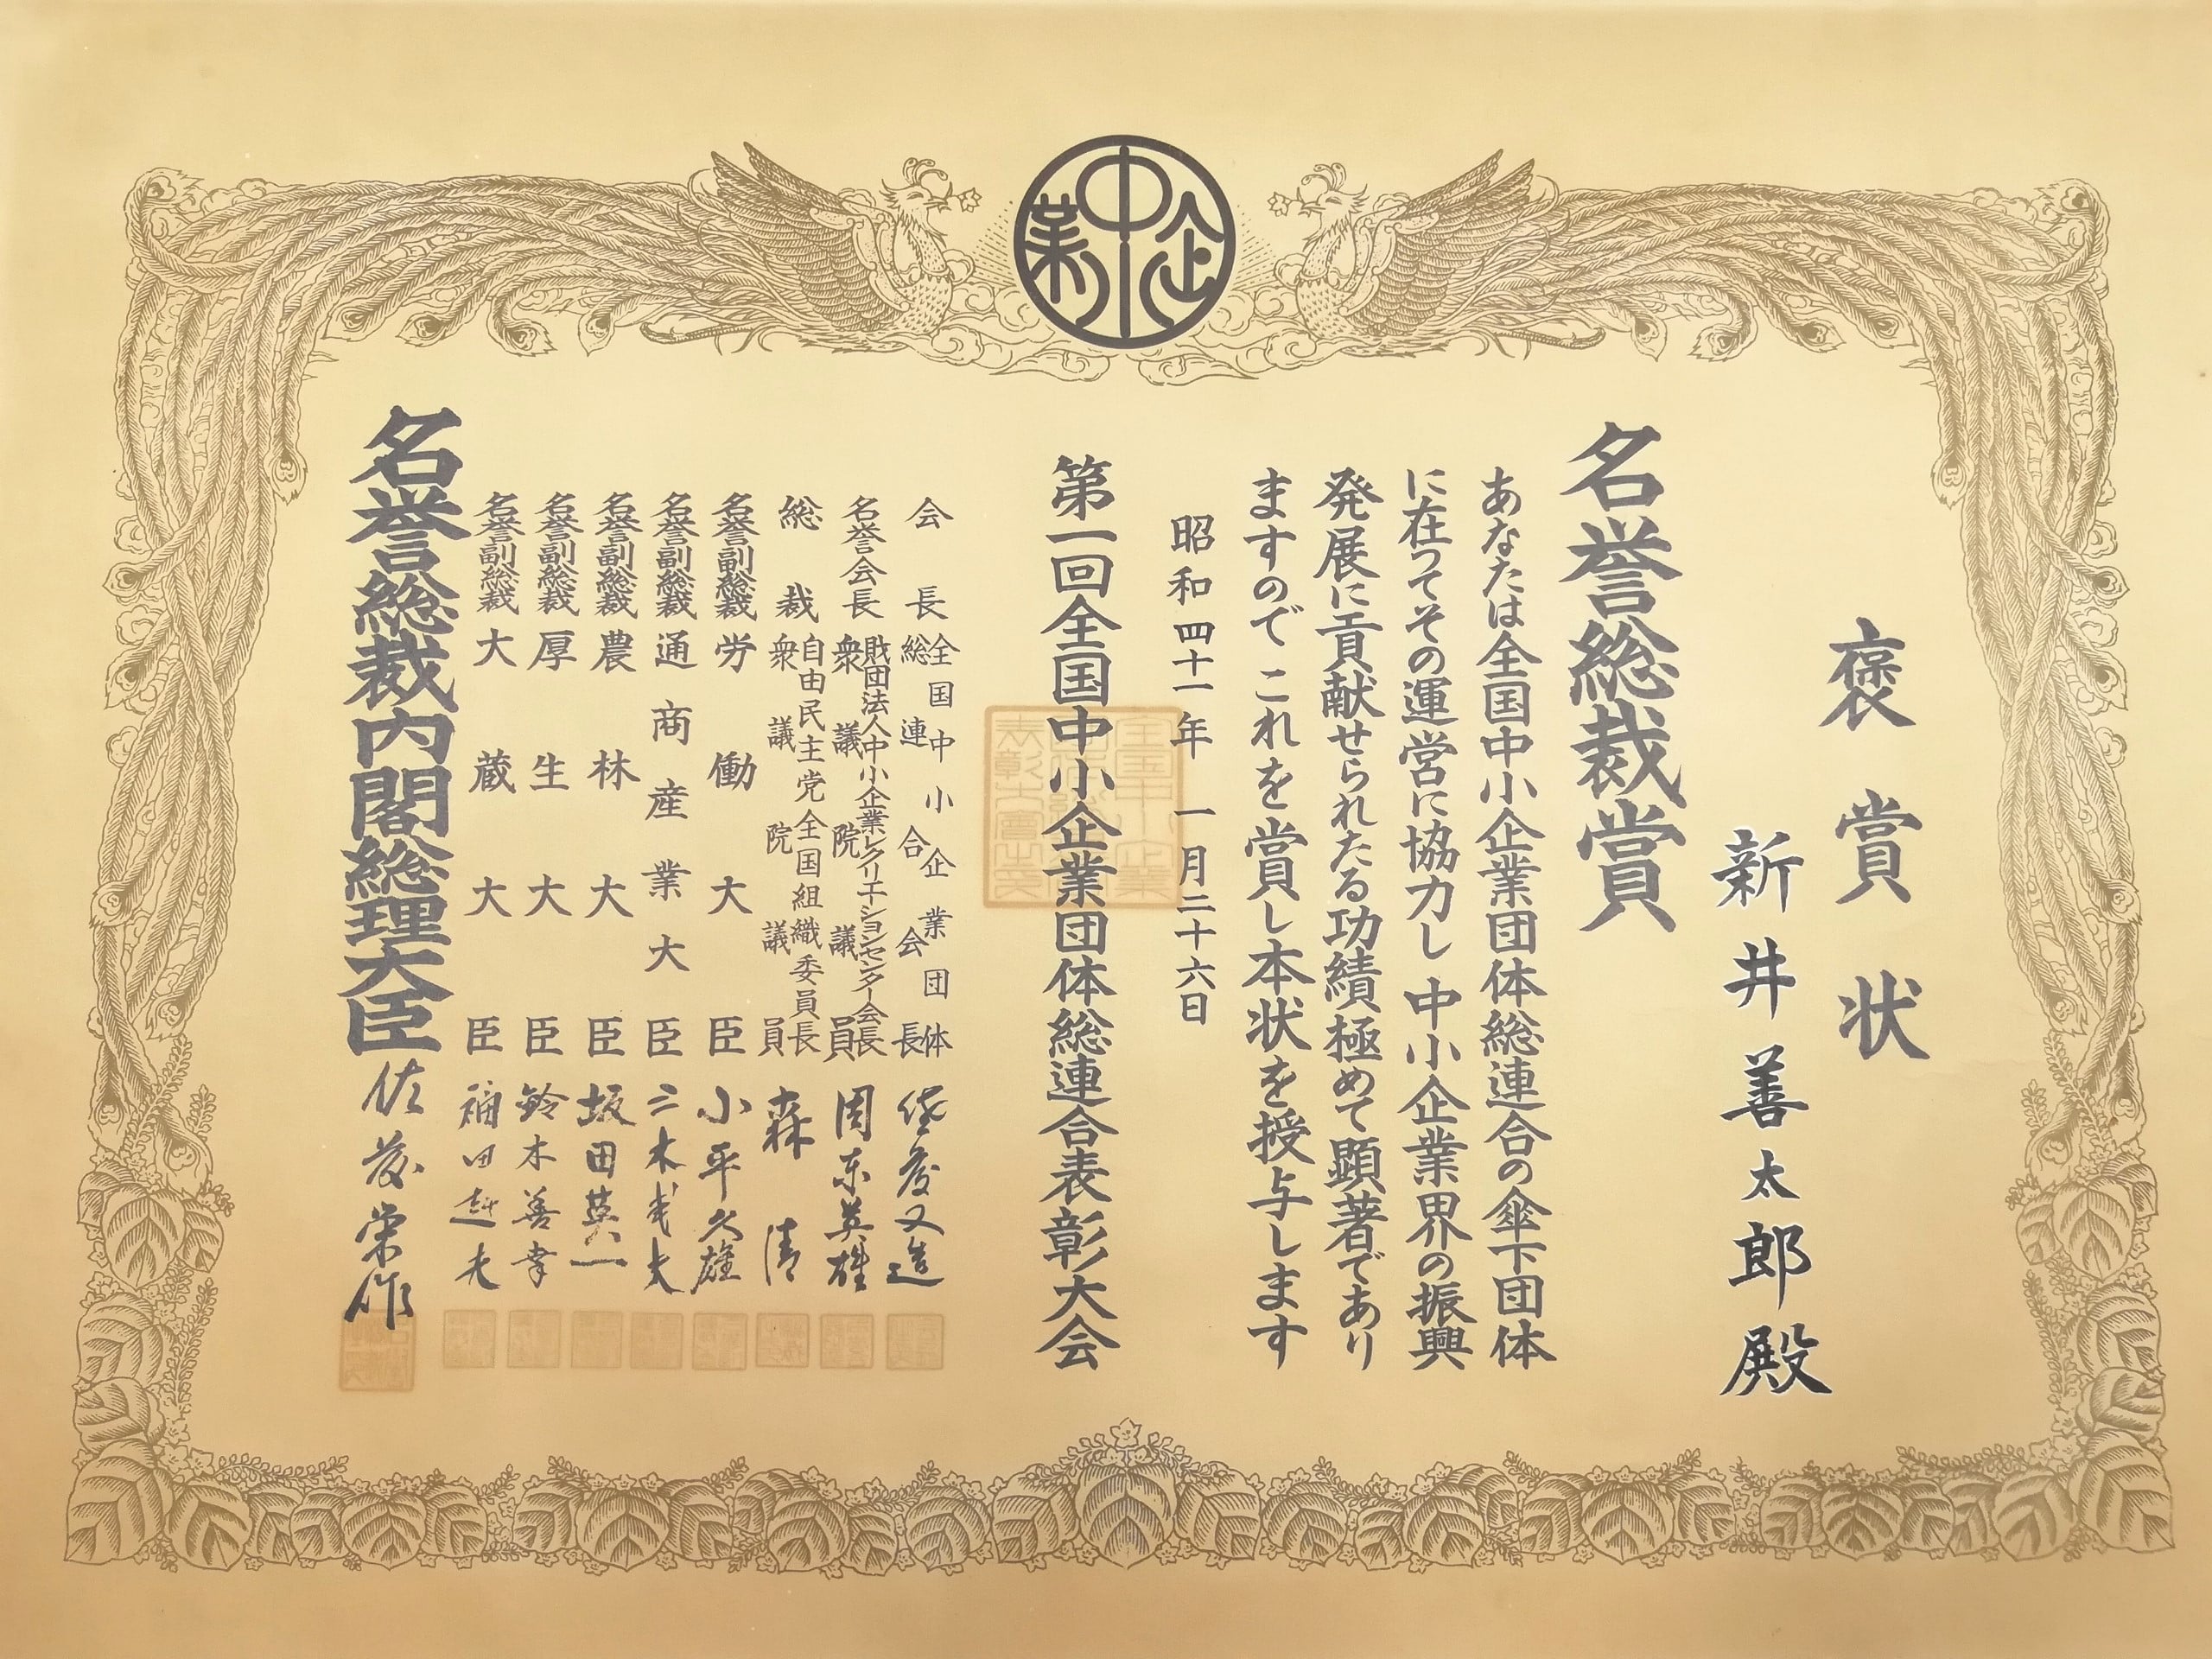 中企業
褒賞状
新井善太郎殿
名誉総裁賞
あなたは全国中小企業団体総連合の傘下団体
に在つてその運営に協力し中小企業界の振興
発展に貢献せられたる功績極めて顕著であり
ますのでこれを賞し本状を授与します
昭和四十一年一月二十六日
第一回全国中小企業団体総連合表彰大会
会長 全国中小企業団体
総連合会長
名誉会長 財団法人中小企業レクリエーションセンター会長
衆議院議員 周東英雄
総裁 自由民主党全国組織委員長
衆議院議員 森清
名誉副総裁 労働大臣 小平久雄
名誉副総裁 通商産業大臣 三木武夫
名誉副総裁 農林大臣 坂田英一
名誉副総裁 厚生大臣 鈴木善幸
名誉副総裁 大蔵大臣 福田赳夫
名誉総裁内閣総理大臣 佐藤栄作